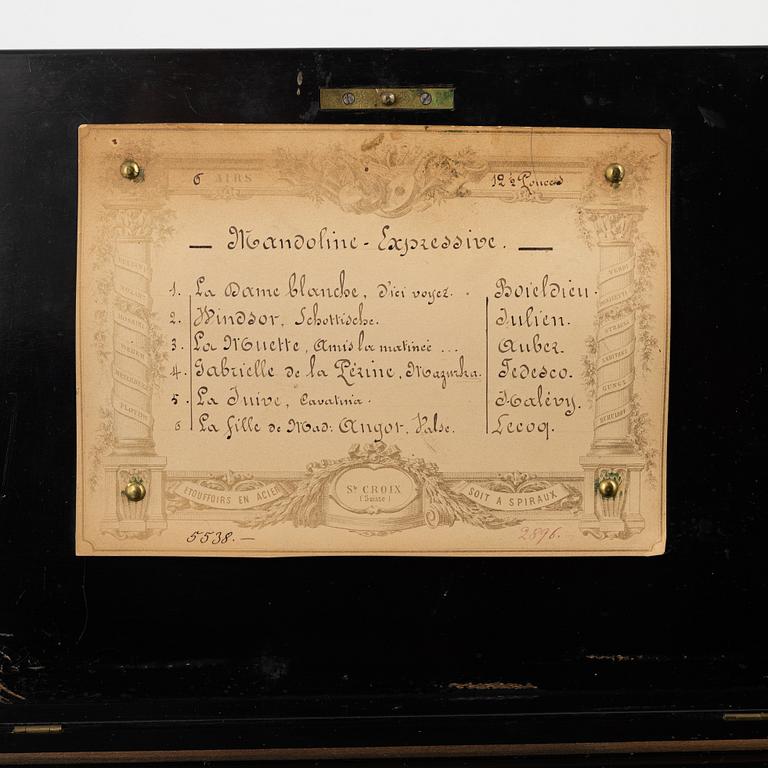 6 AIRS 12½ Pouces
— Mandoline - Expressive. —
1. La Dame blanche, d'ici voyez. . Boieldieu.
2. Windsor, Schottische. Julien.
3. La Muette, Amis la matinée ... Auber.
4. Gabrielle de la Périne, Mazurka. Tedesco.
5. La Juive, Cavatina. Halévy.
6 La fille de Mad: Angot, Valse. Lecoq.
ROSSINI
WEBER
MEYERBEER
FLOTOW
VERDI
DONIZETTI
STRAUSS
LABITZKI
GUNGL
ETOUFFOIRS EN ACIER
STE CROIX
(Suisse)
SOIT A SPIRAUX
5538.—
2896.—